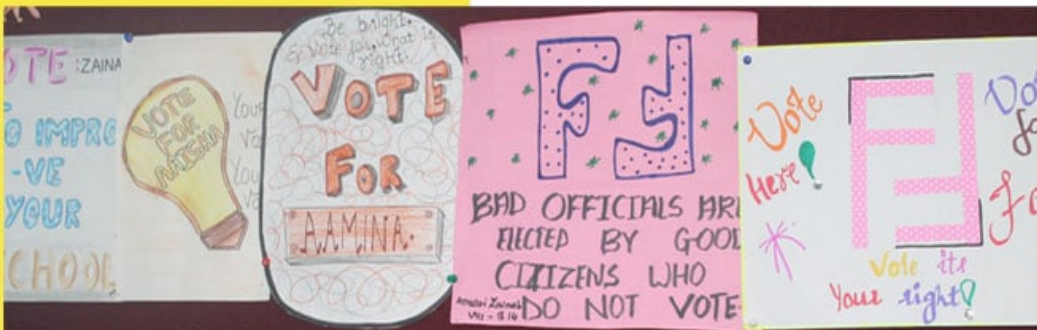 VOTE :ZAINA
TO IMPRO
-VE
YOUR
SCHOOL
VOTE
FOR
MISHA
Your
Vo
You
Vo
Be bright.
& Vote for what is
right.
VOTE
FOR
AAMINA.
FF
BAD OFFICIALS ARE
ELECTED BY GOOD
CITIZENS WHO
DO NOT VOTE
VIII - B 14
Vote
Here!
FF
Vo
fo
Fa
Vote its
Your right!